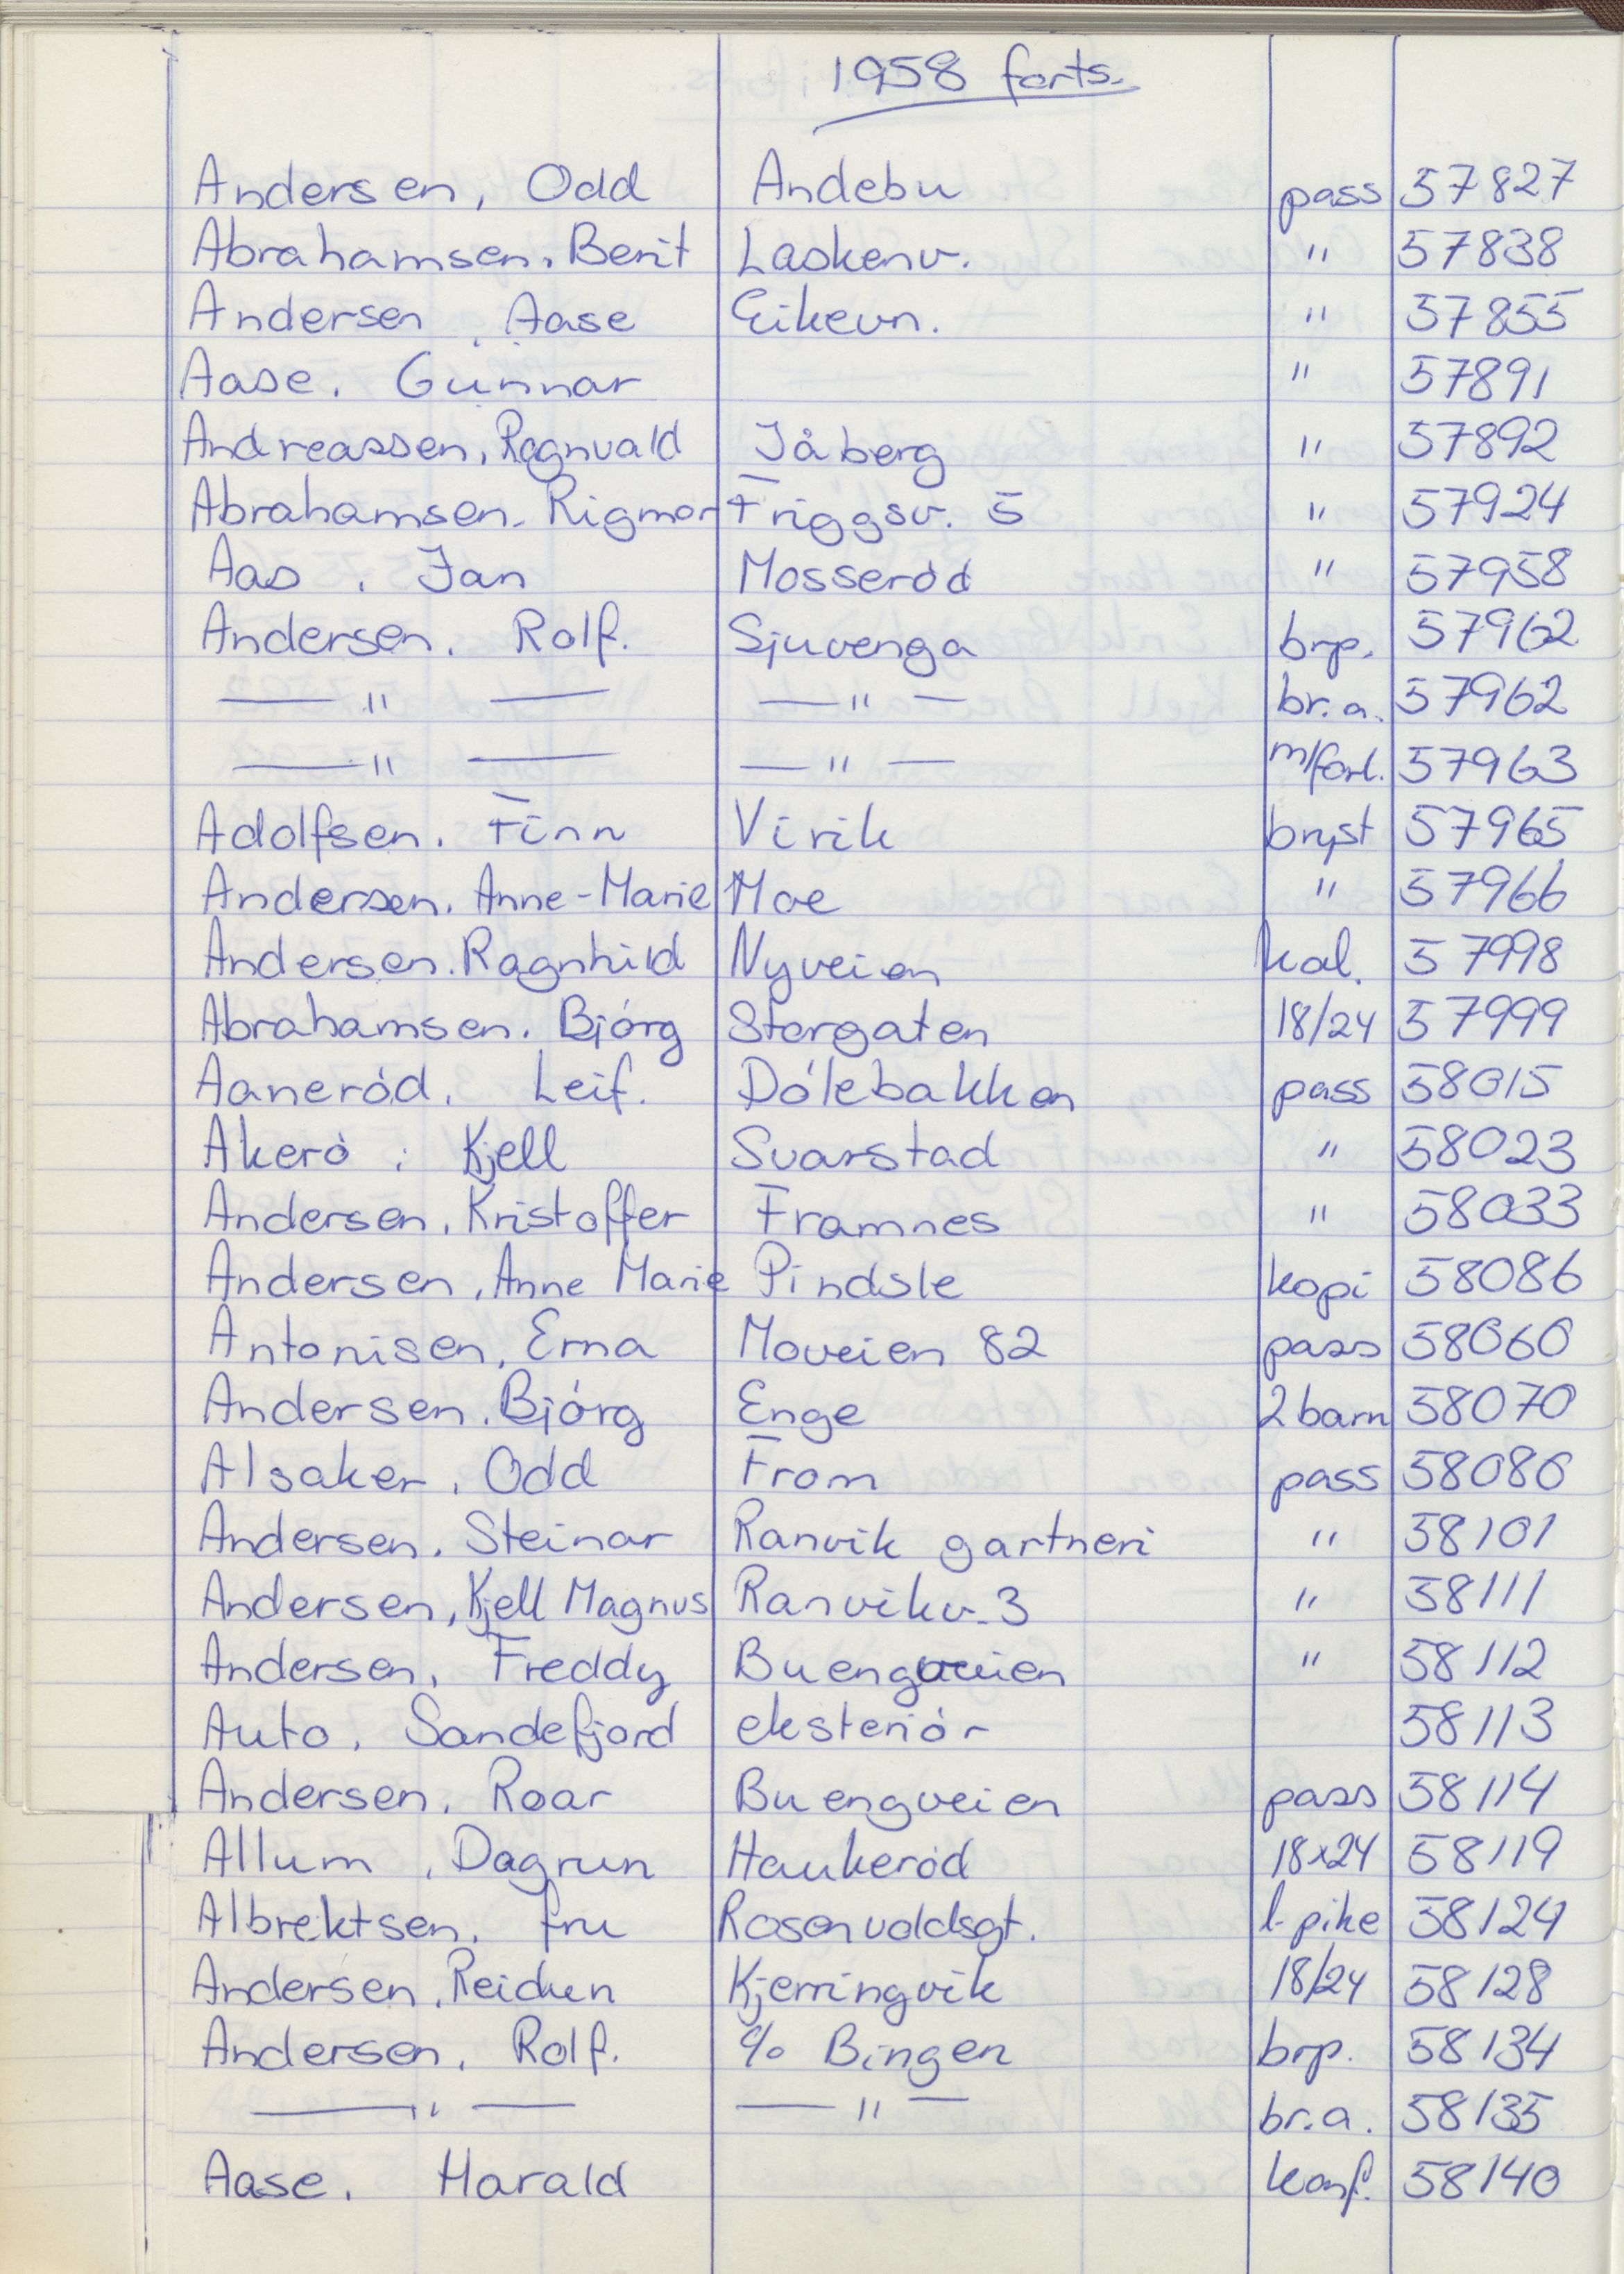 1958 forts.
Andersen, Odd Andebu pass 57827
Abrahamsen. Berit Laskenv. " 57838
Andersen, Aase Eikevn. " 57855
Aase. Gunnar " 57891
Andreassen, Ragnvald Jåberg " 57892
Abrahamsen. Rigmor Friggsv. 5 " 57924
Aas . Jan Mosseród " 57958
Andersen. Rolf. Sjuvenga brp. 57962
— " — — " — br.a. 57962
— " — — " — m/forl. 57963
Adolfsen. Finn Virik bryst 57965
Andersen. Anne-Marie Moe " 57966
Andersen. Ragnhild Nyveien kal. 57998
Abrahamsen. Bjórg Storgaten 18/24 57999
Aaneród. Leif. Dólebakken pass 58015
Akeró . Kjell Svarstad " 58023
Andersen. Kristoffer Framnes " 58033
Andersen, Anne Marie Pindsle kopi 58086
Antonisen, Erna Moveien 82 pass 58060
Andersen. Bjórg Enge 2 barn 58070
Alsaker. Odd From pass 58080
Andersen. Steinar Ranvik gartneri " 58101
Andersen, Kjell Magnus Ranvikv. 3 " 58111
Andersen, Freddy Buengveien " 58112
Auto. Sandefjord eksteriór 58113
Andersen. Roar Buengveien pass 58114
Allum , Dagrun Haukeród 18x24 58119
Albrektsen. fru Rosenvoldsgt. l. pike 58124
Andersen. Reidun Kjerringvik 18/24 58128
Andersen, Rolf. c/o Bingen brp. 58134
— " — — " — br.a. 58135
Aase. Harald konf. 58140